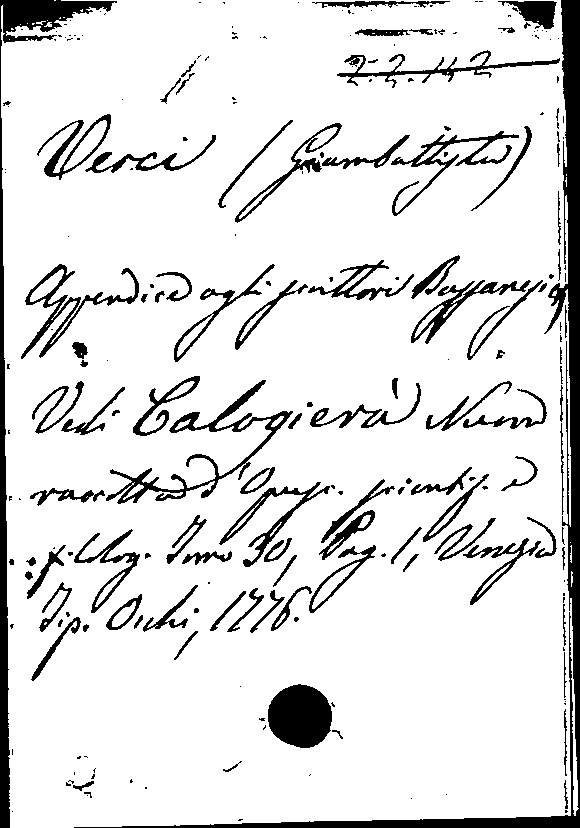 2.2.142
Verci (Giambattista)
Appendice agli scrittori Bassanesi
Vedi Calogierà Nuova
raccolta d'Opusc. scientif. e
filolog. Tomo 30, Pag. 1, Venezia
Tip. Occhi, 1776.